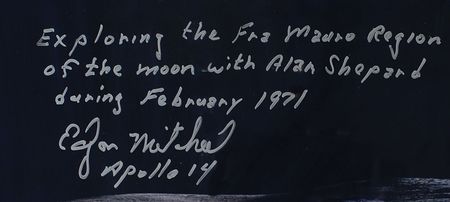 Exploring the Fra Mauro Region
of the moon with Alan Shepard
during February 1971
Edgar Mitchell
Apollo 14